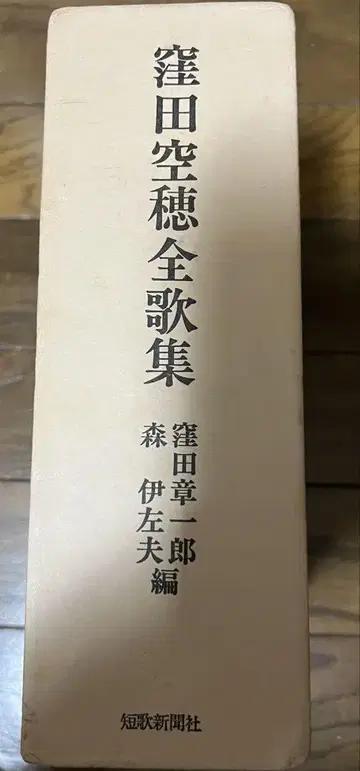 窪田空穂全歌集
窪田章一郎
森伊左夫編
短歌新聞社